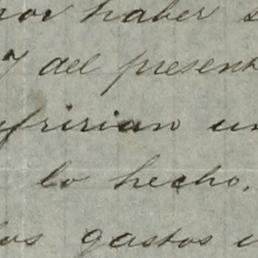 por haber s
7 del present
ufririan un
lo hecho,
los gastos u